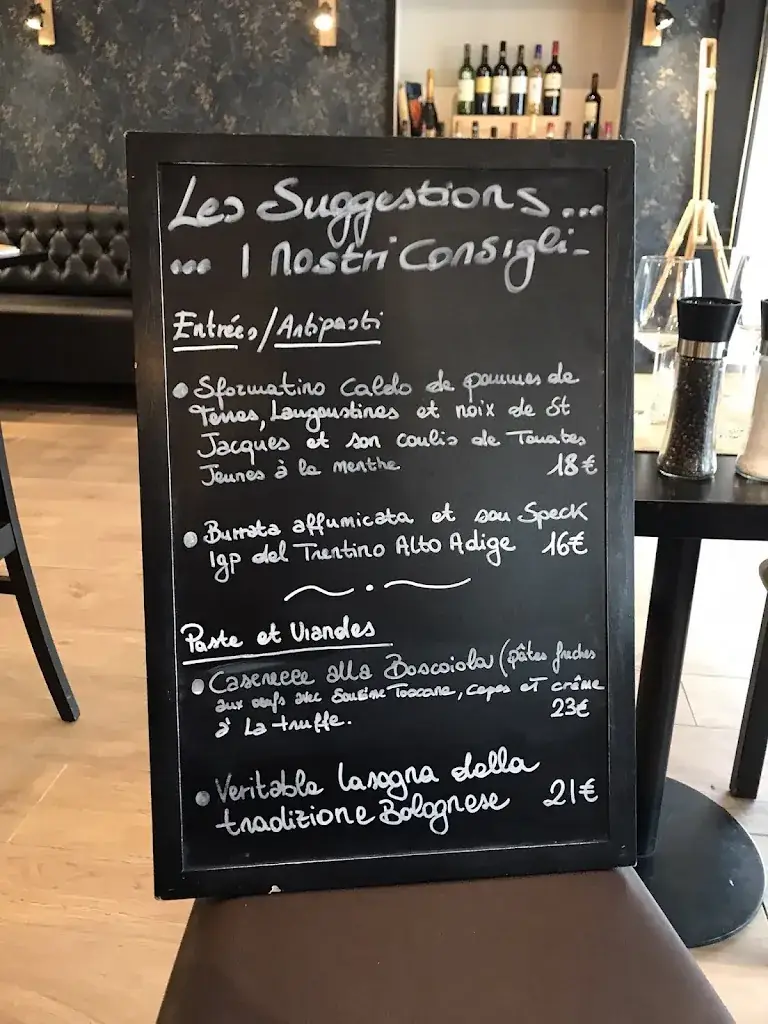 Les Suggestions...
... I nostri Consigli-
Entrées/Antipasti
Sformatino Caldo de pommes de
Terres, Langoustines et noix de St
Jacques et son coulis de Tomates
Jeunes à la menthe 18€
Burrata affumicata et son Speck
Igp del Trentino Alto Adige 16€
Paste et Viandes
Caserecce alla Boscaiola (pâtes fraiches
aux oeufs avec Saucisse Toscane, cepes et crème
à La truffe. 23€
Veritable lasagna della
tradizione Bolognese 21€